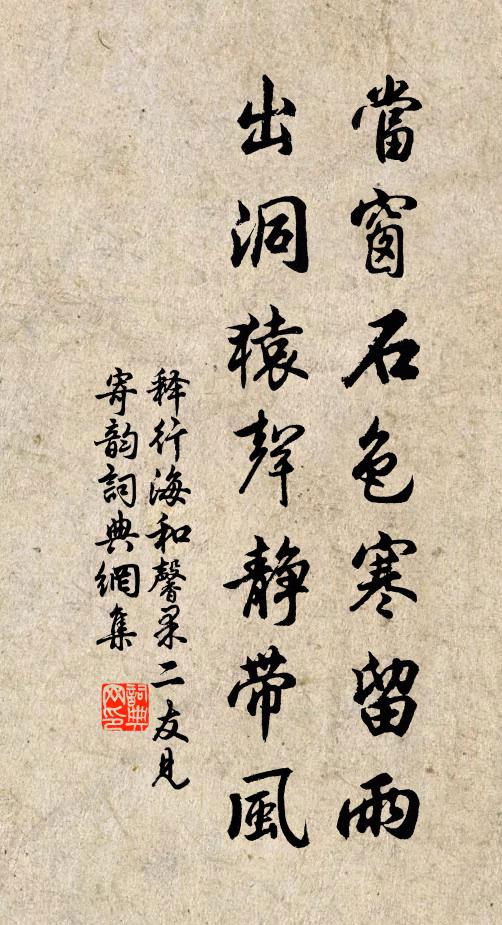 當窗石色寒留雨
出洞猿聲靜帶風
释行海和馨杲二友見
寄韵詞典網集
詞典网印